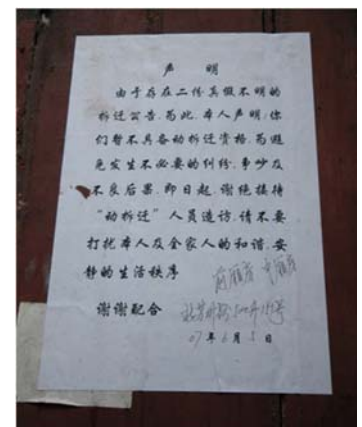 声 明
由于存在二份真假不明的
拆迁公告，为此，本人声明：你
们暂不具备动拆迁资格，为避
免发生不必要的纠纷，争吵及
不良后果，即日起，谢绝接待
“动拆迁”人员造访，请不要
打扰本人及全家人的和谐、安
静的生活秩序
谢谢配合
07年6月5日